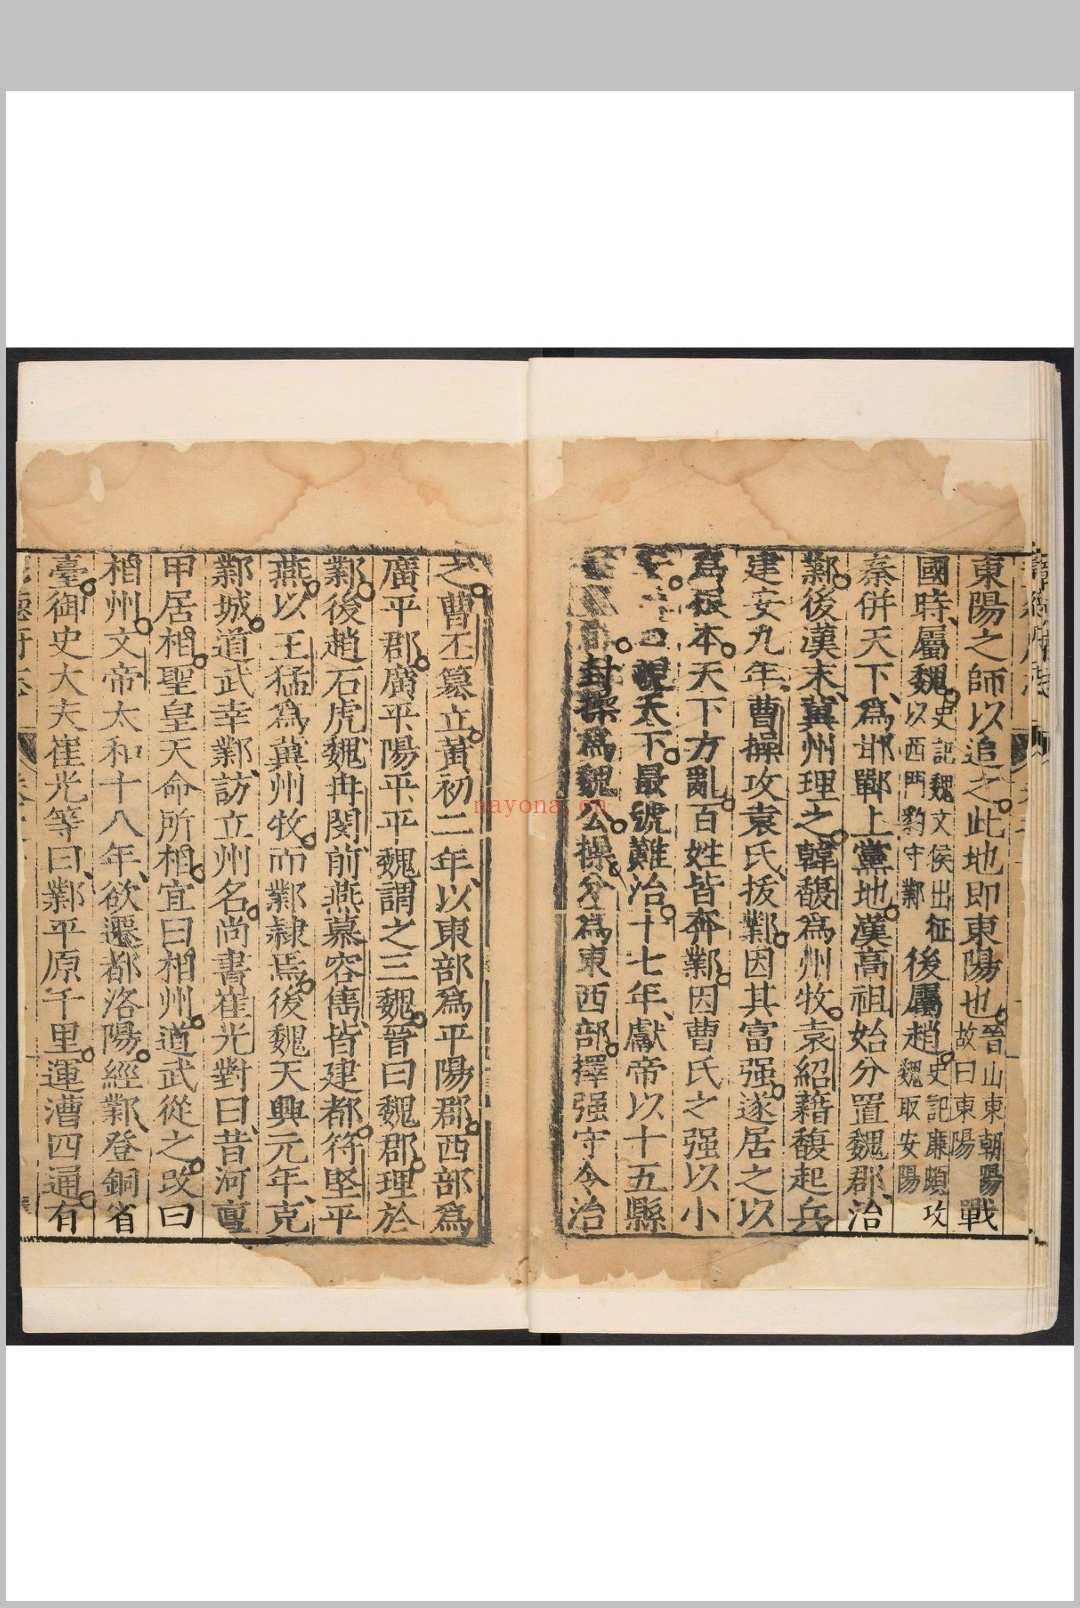 東陽之師以追之此地即東陽也晉山東朝陽故曰東陽戰
國時屬魏史記魏文侯出征以西門豹守鄴後屬趙史記廉頗攻魏取安陽
秦併天下爲邯鄲上黨地漢高祖始分置魏郡治
鄴後漢末冀州理之韓馥爲州牧袁紹藉馥起兵
建安九年曹操攻袁氏拔鄴因其富强遂居之以
爲根本天下方亂百姓皆奔鄴因曹氏之强以小
覬天下最號難治十七年獻帝以十五縣
封操爲魏公操分爲東西部擇强守令治
之曹丕簒立黃初二年以東部爲平陽郡西部爲
廣平郡廣平陽平平魏謂之三魏晉曰魏郡理於
鄴後趙石虎魏冉閔前燕慕容雋皆建都符堅平
燕以王猛爲冀州牧而鄴隸焉後魏天興元年克
鄴城道武幸鄴訪立州名尚書崔光對曰昔河亶
甲居相聖皇天命所相宜曰相州道武從之改曰
相州文帝太和十八年欲遷都洛陽經鄴登銅省
臺御史大夫崔光等曰鄴平原千里運漕四通有
nayona.cn